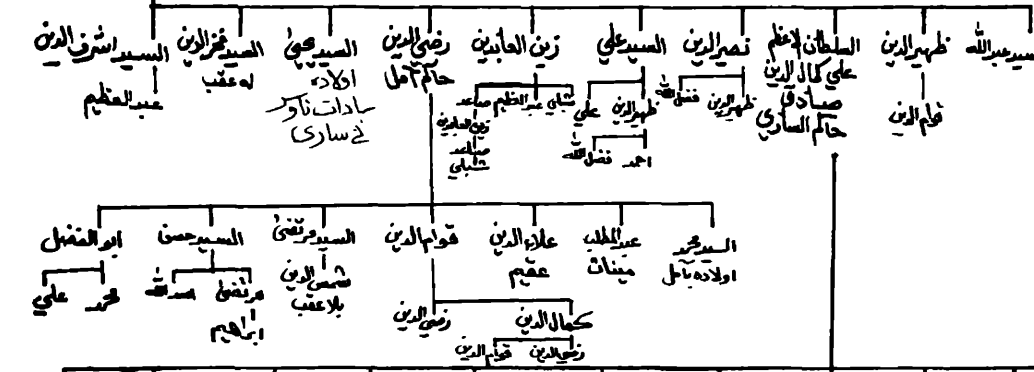 سيد عبدالله
ظهيرالدين
قوام الدين
السلطان الاعظم
علي كمال الدين
صادق
حاكم الساري
نصيرالدين
ظهيرالدين
فضل الله
السيد علي
ظهيرالدين
علي
احمد
فضل الله
زين العابدين
شبلي
عبدالعظيم
صاعد
زين العابدين
صاعد
شبلي
رضي الدين
حاكم آمل
السيد يحيى
اولاده
سادات
في ساري
السيد فخرالدين
له عقب
السيد اشرف الدين
عبدالعظيم
السيد محمد
اولاده بآمل
عبدالمطلب
ميناث
علاء الدين
عقيم
قوام الدين
كمال الدين
رضي الدين
رضي الدين
قوام الدين
السيد مرتضى
شمس الدين
بلا عقب
السيد حسن
مرتضى
اسدالله
ابراهيم
ابو الفضل
محمد
علي